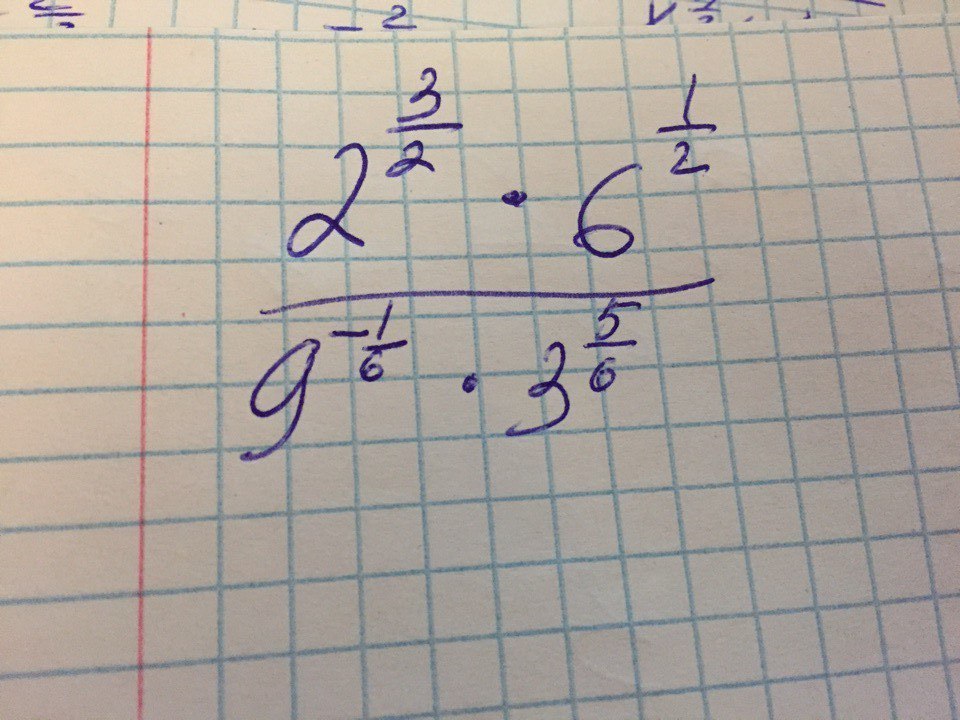 2^{\frac{3}{2}} \cdot 6^{\frac{1}{2}}
9^{-\frac{1}{6}} \cdot 3^{\frac{5}{6}}